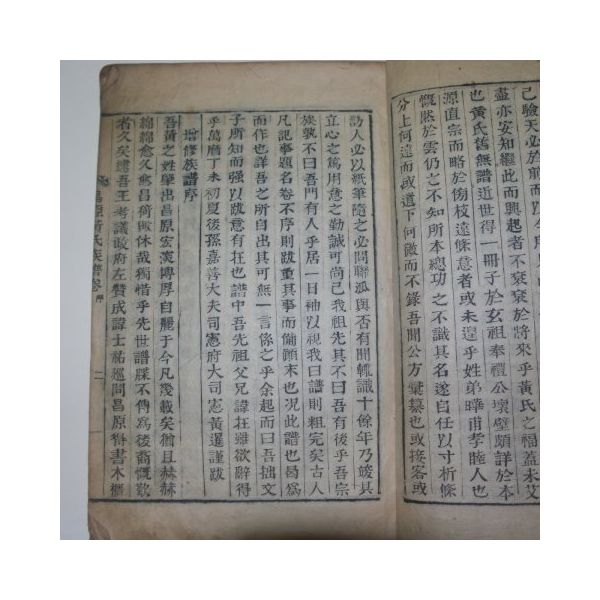 己驗天必於前而以今
盡亦安知繼此而興起者不衰於將來乎黃氏之福蓋未艾
也黃氏舊無譜近世得一冊子於玄祖奉禮公壞壁頗詳於本
源直宗而略於傍枝遠條意者或未遑乎姓弟曄甫孝睦人也
慨然於雲仍之不知所本總功之不識其名遂自任以寸析條
分上何遠而或遺下何微而不錄吾聞公方彙纂也或接客或
訪人必以紙筆隨之必問聯派與否有聞輒識十餘年乃竣其
立心之篤用意之勤誠可尚已我祖先其不曰吾有後乎吾宗
族孰不曰吾門有人乎居一日袖以視我曰譜則粗完矣古人
凡記事題名卷不序則跋重其事而備顚末也况此譜也曷爲
而作也詳吾之所自出其可無一言係之乎余起而曰吾拙文
子所知而强以跋意有在也譜中吾先祖父兄諱在雖欲辭得
乎萬曆丁未初夏後孫嘉善大夫司憲府大司憲黃暹謹跋
增修族譜序
吾黃之姓肇出昌原宏演博厚自麗于今凡幾載矣猶且赫赫
綿綿愈久愈昌猗歟休哉獨惜乎先世譜牒不傳爲後裔慨歎
者久矣逮吾王考議政府左贊成諱士祐廵問昌原督書木櫃
昌原黃氏族譜卷 序 二